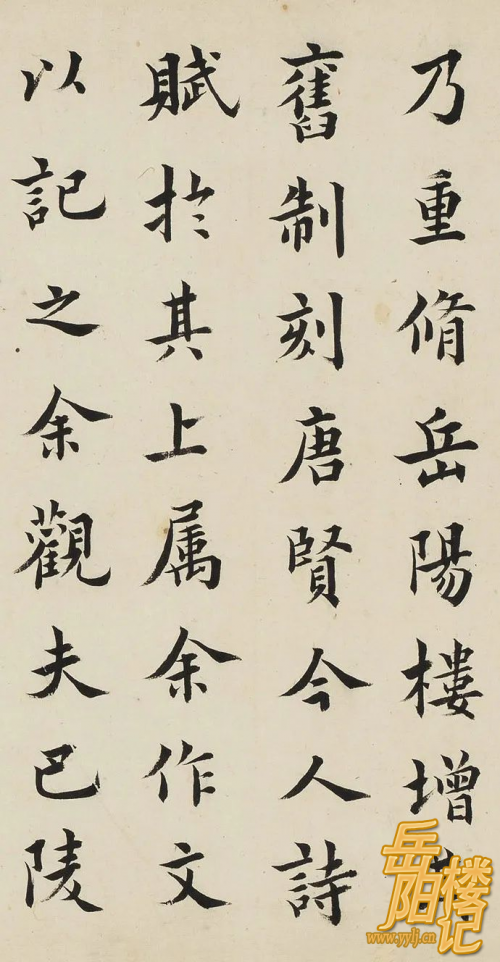 乃重脩岳陽樓增
舊制刻唐賢今人詩
賦於其上属余作文
以記之余觀夫巴陵
岳阳楼记
www.yylj.cn